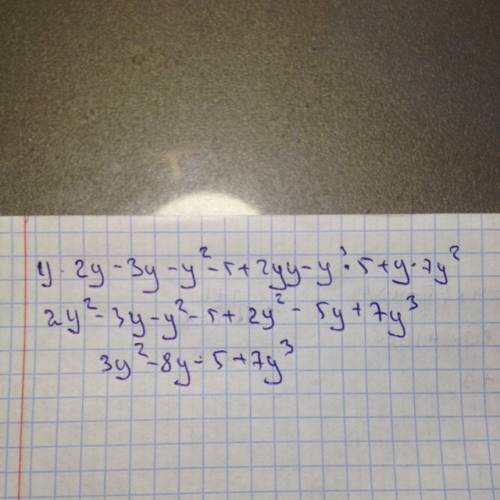 y · 2y - 3y - y² - 5 + 2yy - y¹ · 5 + y · 7y²
2y² - 3y - y² - 5 + 2y² - 5y + 7y³
3y² - 8y - 5 + 7y³